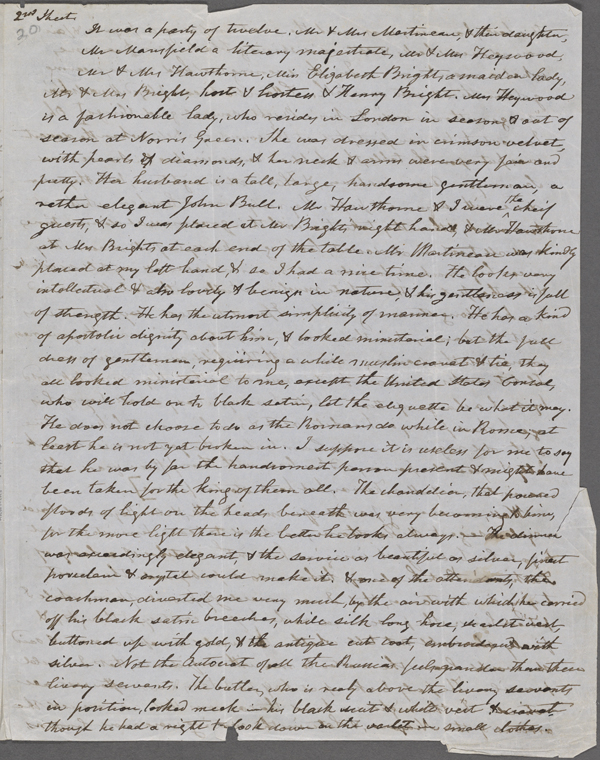 2nd Sheet
20
It was a party of twelve. Mr & Mrs Martineau, & their daughter,
Mr Mansfield a literary magistrate, Mr & Mrs Heywood,
Mr & Mrs Hawthorne, Miss Elizabeth Bright, a maiden lady,
Mr & Mrs Bright, host & hostess & Henry Bright. Mrs Heywood
is a fashionable lady, who resides in London in season & out of
season at Norris Green. She was dressed in crimson velvet,
with pearls & diamonds, & her neck & arms were very fair and
pretty. Her husband is a tall, large, handsome gentleman, a
rather elegant John Bull. Mr Hawthorne & I were the chief
guests, & so I was placed at Mr Bright's right hand, & Mr Hawthorne
at Mrs Bright's, at each end of the table. Mr Martineau was kindly
placed at my left hand & so I had a nice time. He looks very
intellectual & also lovely & benign in nature, & his gentleness is full
of strength. He has the utmost simplicity of manner. He has a kind
of apostolic dignity about him, & looked ministerial; but the full
dress of gentlemen, requiring a white muslin cravat & tie, they
all looked ministerial to me, except the United States Consul,
who will hold on to black satin, let the etiquette be what it may.
He does not choose to do as the Romans do while in Rome, at
least he is not yet broken in. I suppose it is useless for me to say
that he was by far the handsomest person present & might have
been taken for the king of them all. The chandelier, that poured
floods of light on the heads beneath was very becoming to him,
for the more light there is the better he looks always. The dinner
was exceedingly elegant, & the service as beautiful as silver, finest
porcelain & crystal could make it, & one of the attendants, the
coachman, diverted me very much, by the air with which he carried
off his black satin breeches, white silk long hose, scarlet vest,
buttoned up with gold, & the antique cut coat, embroidered with
silver. Not the Autocrat of all the Russias feels grander than these
livery servants. The butler, who is really above the livery servants
in position, looked meek in his black suit & white vest & cravat,
though he had a right to look down on the varlet in small clothes.